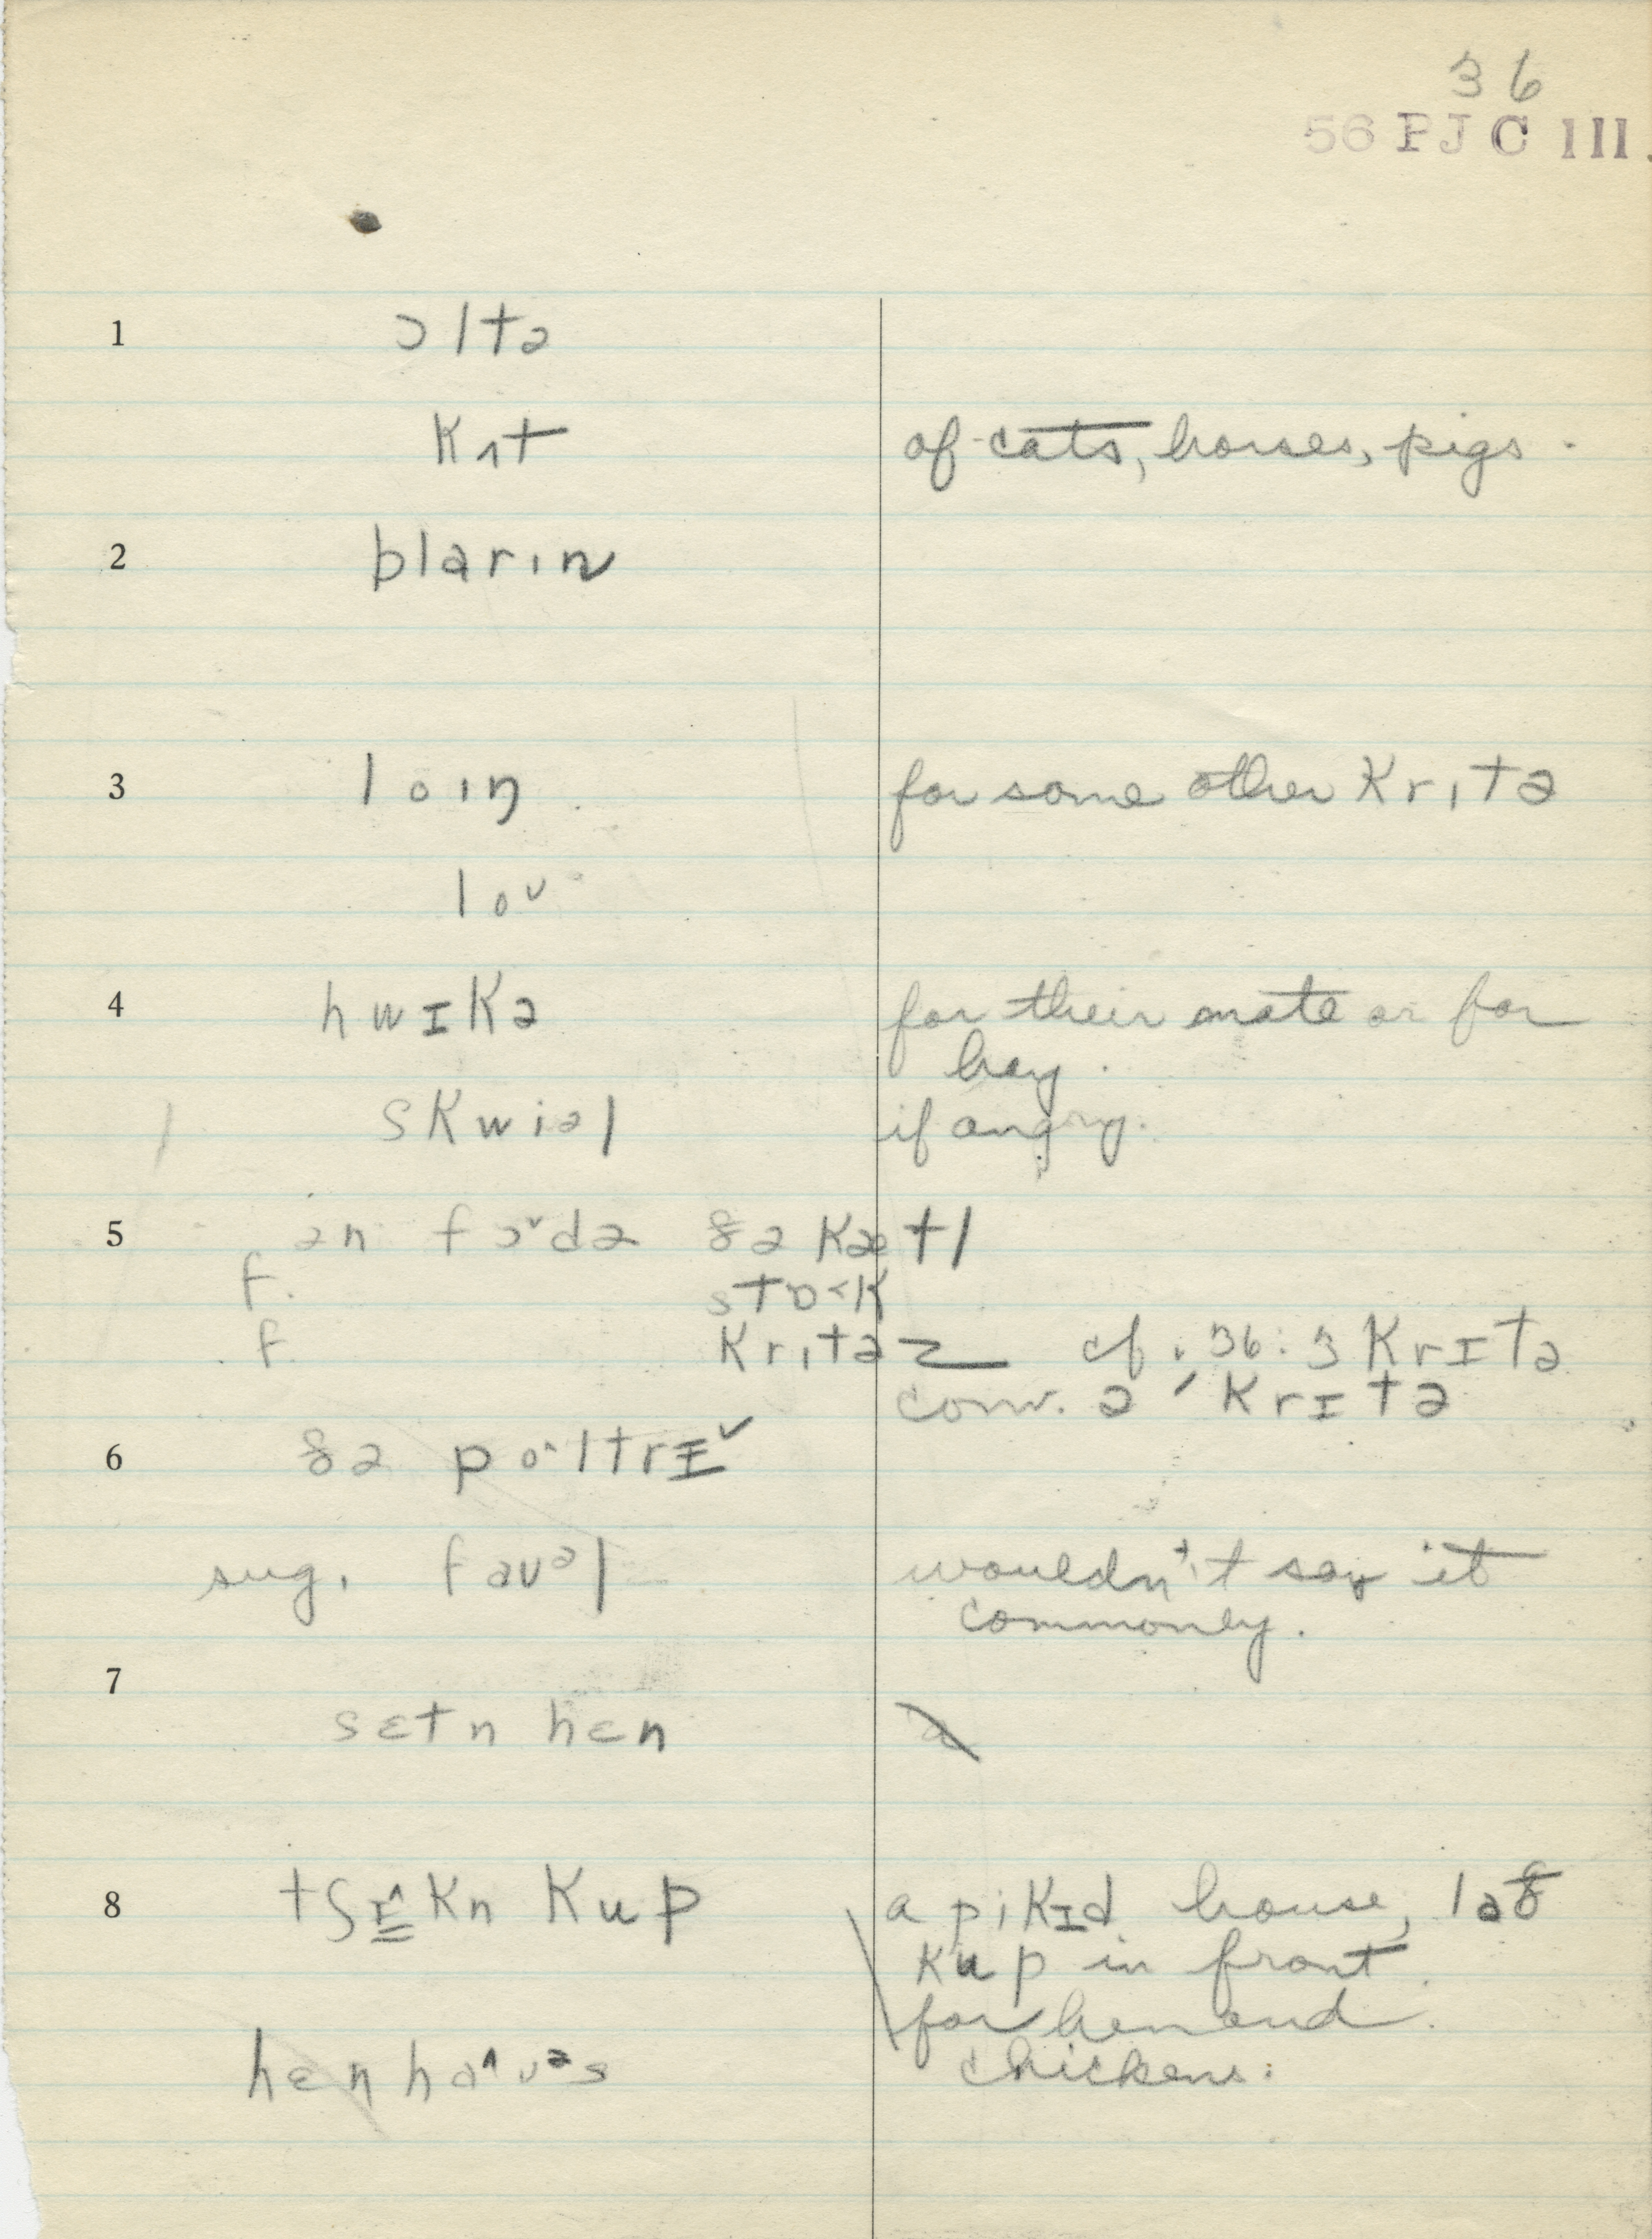 36
56 PJC III.
1 ɔltə
kʌt of cats, horses, pigs.
2 blarɪn
3 loɪŋ for some other krɪtə
loᴜ
4 hwɪkə for their mate or for
hay.
skwiəl if angry.
5 ən fɔ˅də ðə kætl
f. stɒ˂k
f. krɪtəz cf. 36:3 krɪtə
conv. ə ˈkrɪtə
6 ðə po˄ltrɪ˅
sug. faᴜəl wouldn't say it
commonly.
7
sɛtn hɛn
8 tʃɪ̳˄kn kup a pikɪd house, laθ
kup in front.
for hen and
hɛn ha˄ᴜəs chickens.